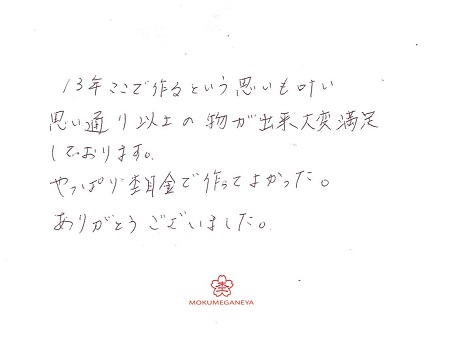 13年ここで作るという思いも叶い
思い通り以上の物が出来大変満足
しております。
やっぱり杢目金で作ってよかった。
ありがとうございました。
杢
MOKUMEGANEYA